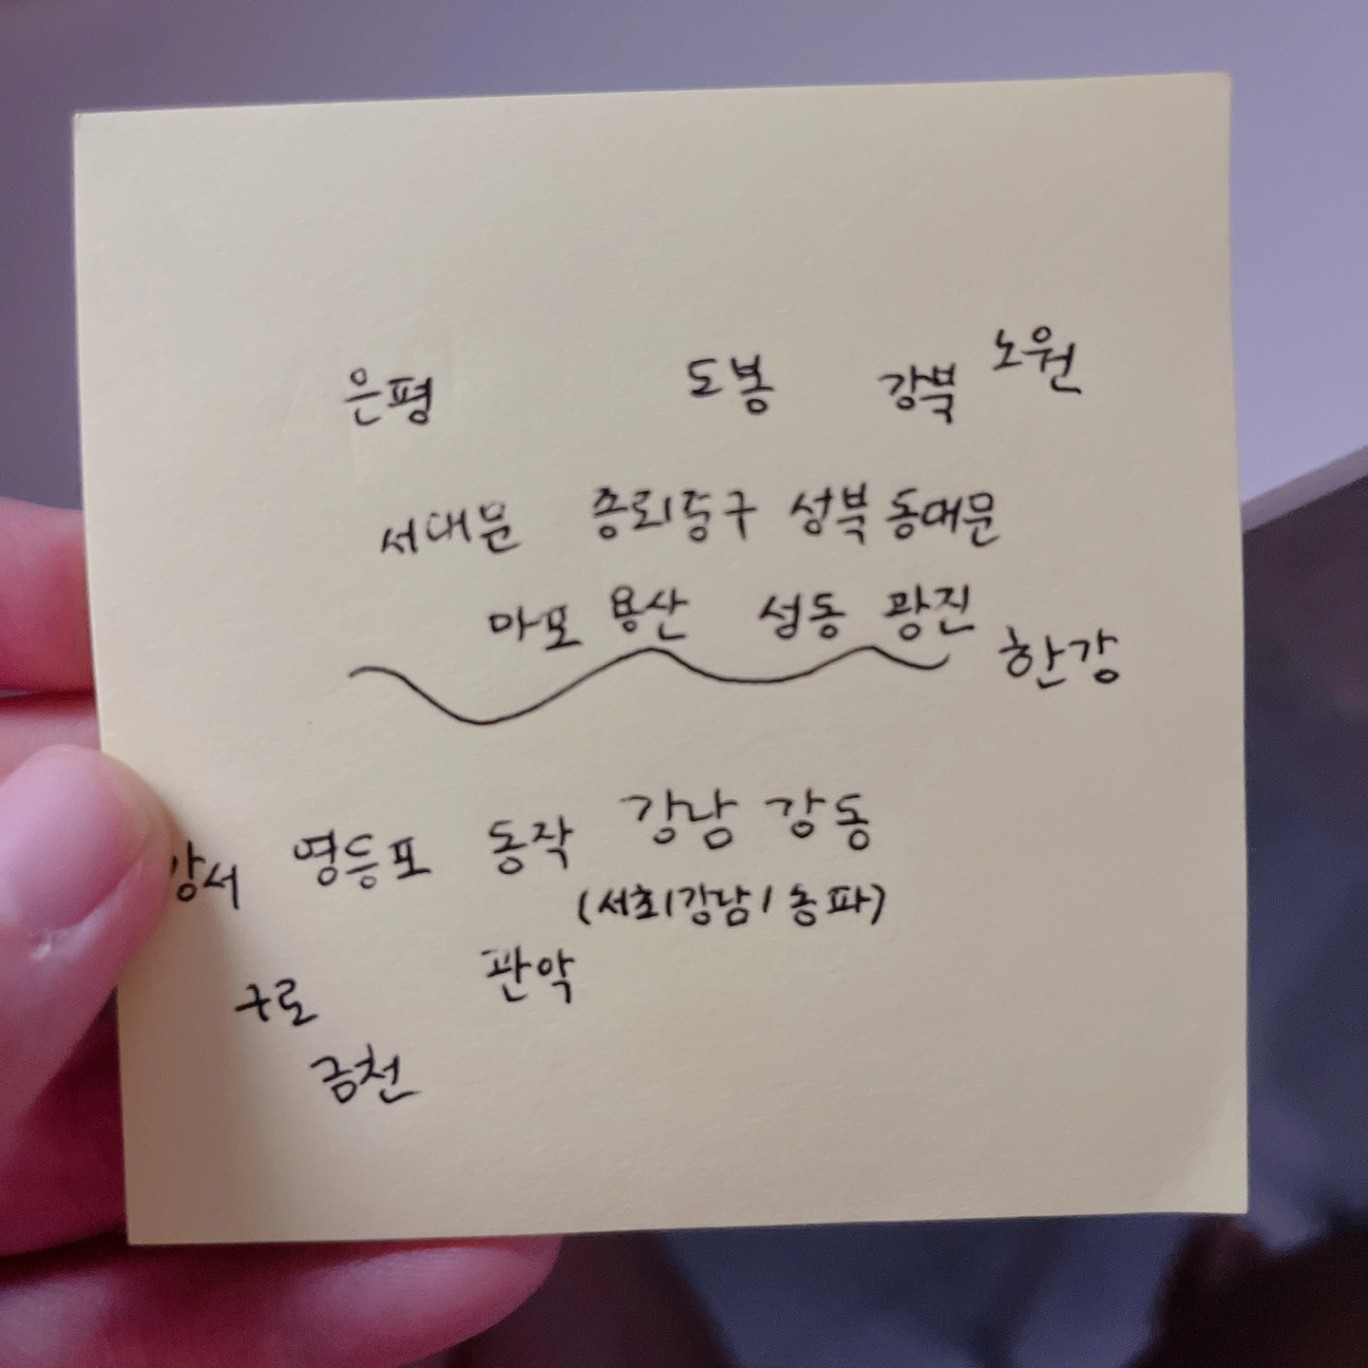 은평 도봉 강북 노원
서대문 종로/중구 성북 동대문
마포 용산 성동 광진
한강
강서 영등포 동작 강남 강동
(서초/강남/송파)
구로 관악
금천